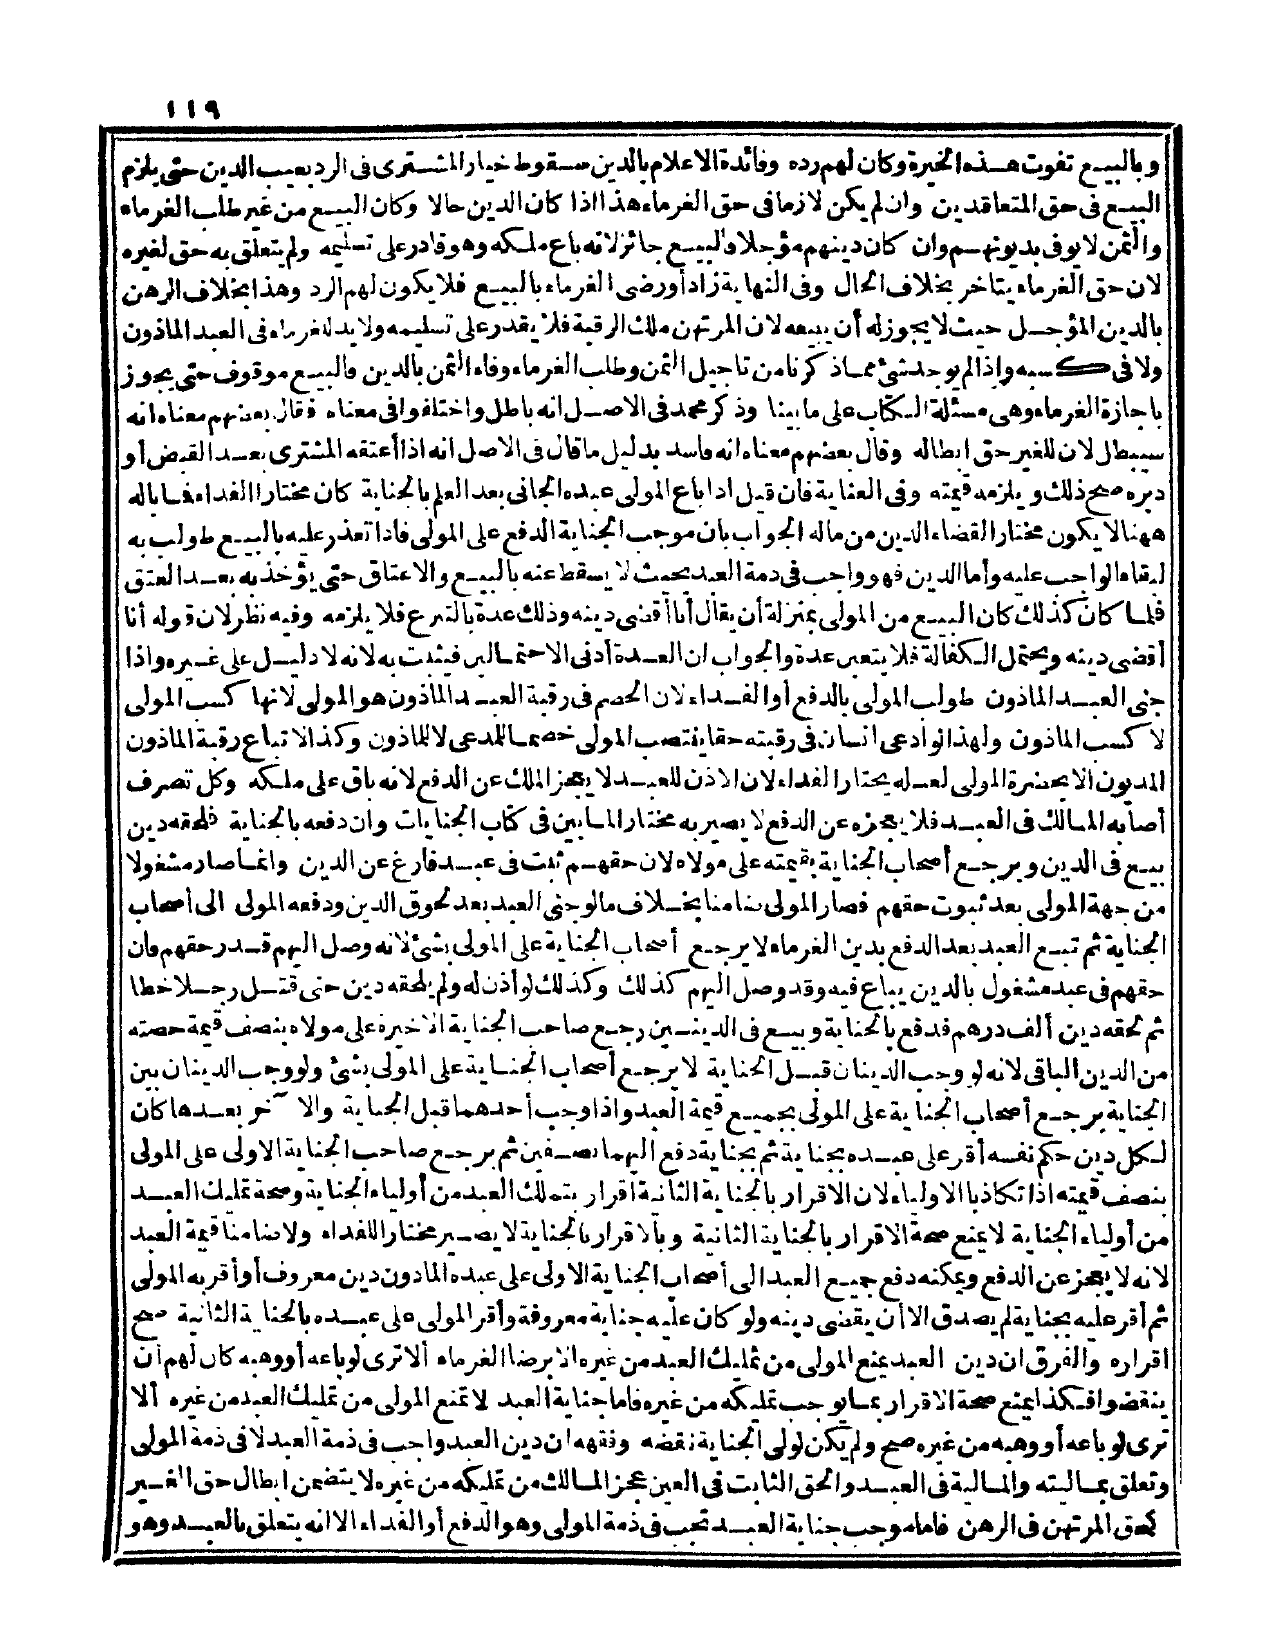 ١١٩
وبالبيع تفوت هذه الخيرة وكان لهم رده وفائدة الاعلام بالدين سقوط خيار المشترى فى الرد بعيب الدين حتى يلزم
البيع فى حق المتعاقدين وان لم يكن لازما فى حق الغرماء هذا اذا كان الدين حالا وكان البيع من غير طلب الغرماء
والثمن لا يوفى بديونهم وان كان دينهم مؤجلا والبيع جائز لانه باع ملكه وهو قادر على تسليمه ولم يتعلق به حق لغيره
لان حق الغرماء يتاخر بخلاف الحال وفى النهاية زاد أو رضى الغرماء بالبيع فلا يكون لهم الرد وهذا بخلاف الرهن
بالدين المؤجل حيث لا يجوز له أن يبيعه لان المرتهن ملك الرقبة فلا يقدر على تسليمه ولا يد للغرماء فى العبد الماذون
ولا فى كسبه واذا لم يوجد شئ مما ذكرنا من تاجيل الثمن وطلب الغرماء وفاء الثمن بالدين فالبيع موقوف حتى يجوز
باجازة الغرماء وهى مسئلة الكتاب على ما بينا وذكر محمد فى الاصل انه باطل واختلفوا فى معناه فقال بعضهم معناه انه
سيبطل لان للغير حق ابطاله وقال بعضهم معناه انه فاسد بدليل ما قال فى الاصل انه اذا أعتقه المشترى بعد القبض أو
دبره صح ذلك ويلزمه قيمته وفى العناية فان قيل اذا باع المولى عبده الجانى بعد العلم بالجناية كان مختارا الفداء فما باله
ههنا لا يكون مختارا لقضاء الدين من ماله الجواب بان موجب الجناية الدفع على المولى فاذا تعذر عليه بالبيع طولب به
لبقاء الواجب عليه وأما الدين فهو واجب فى ذمة العبد بحيث لا يسقط عنه بالبيع والاعتاق حتى يؤخذ به بعد العتق
فلما كان كذلك كان البيع من المولى بمنزلة أن يقال أنا أقضى دينه وذلك عدة بالتبرع فلا يلزمه وفيه نظر لان قوله أنا
أقضى دينه ويحتمل الكفالة فلا يتعين عدة والجواب ان العدة أدنى الاحتمالين فيثبت به لانه لا دليل على غيره واذا
جنى العبد الماذون طولب المولى بالدفع أو الفداء لان الخصم فى رقبة العبد الماذون هو المولى لانها كسب المولى
لا كسب الماذون ولهذا لو ادعى انسان فى رقبته حقا ينتصب المولى خصما للمدعى لا للماذون وكذا لا تباع رقبة الماذون
المديون الا بحضرة المولى لعله يختار الفداء لان الاذن للعبد لا يعجز الملك عن الدفع لانه باق على ملكه وكل تصرف
أصابه المالك فى العبد فلا يعجزه عن الدفع لا يصير به مختارا لما بين فى كتاب الجنايات وان دفعه بالجناية فلحقه دين
بيع فى الدين ويرجع أصحاب الجناية بقيمته على مولاه لان حقهم ثبت فى عبد فارغ عن الدين وانما صار مشغولا
من جهة المولى بعد ثبوت حقهم فصار المولى ضامنا بخلاف ما لو جنى العبد بعد لحوق الدين ودفعه المولى الى أصحاب
الجناية ثم تبيع العبد بعد الدفع بدين الغرماء لا يرجع أصحاب الجناية على المولى بشئ لانه وصل اليهم قدر حقهم وان
حقهم فى عبد مشغول بالدين يباع فيه وقد وصل اليهم كذلك وكذلك لو أذن له ولم يلحقه دين حتى قتل رجلا خطا
ثم لحقه دين ألف درهم فدفع بالجناية وبيع فى الدينين رجع صاحب الجناية الاخيرة على مولاه بنصف قيمة حصته
من الدين الباقى لانه لو وجب الدينان قبل الجناية لا يرجع أصحاب الجناية على المولى بشئ ولو وجب الدينان بين
الجناية يرجع أصحاب الجناية على المولى بجميع قيمة العبد واذا وجب أحدهما قبل الجناية والآخر بعدها كان
لكل دين حكم نفسه أقر على عبده بجناية ثم بجناية دفع اليهما نصفين ثم يرجع صاحب الجناية الاولى على المولى
بنصف قيمته اذا تكاذبا الاولياء لان الاقرار بالجناية الثانية اقرار بتملك العبد من أولياء الجناية وصحة تمليك العبد
من أولياء الجناية لا يمنع صحة الاقرار بالجناية الثانية وبالاقرار بالجناية لا يصير مختارا للفداء ولا ضامنا قيمة العبد
لانه لا يعجز عن الدفع ويمكنه دفع جميع العبد الى أصحاب الجناية الاولى على عبده الماذون دين معروف أو أقر به المولى
ثم أقر عليه بجناية لم يصدق الا أن يقضى دينه ولو كان عليه جناية معروفة وأقر المولى على عبده بالجناية الثانية صح
اقراره والفرق ان دين العبد يمنع المولى من تمليك العبد من غيره الا برضا الغرماء ألا ترى لو باعه أو وهبه كان لهم أن
ينقضوا فكذا يمنع صحة الاقرار بما يوجب تمليكه من غيره فاما جناية العبد لا تمنع المولى من تمليك العبد من غيره ألا
ترى لو باعه أو وهبه من غيره صح ولم يكن لولى الجناية نقضه وفقهه ان دين العبد واجب فى ذمة العبد لا فى ذمة المولى
وتعلق بماليته والمالية فى العبد والحق الثابت فى العين عجز المالك من تمليكه من غيره لا يتضمن ابطال حق الغير
كحق المرتهن فى الرهن فاما موجب جناية العبد تجب فى ذمة المولى وهو الدفع أو الفداء الا انه يتعلق بالعبد وهو